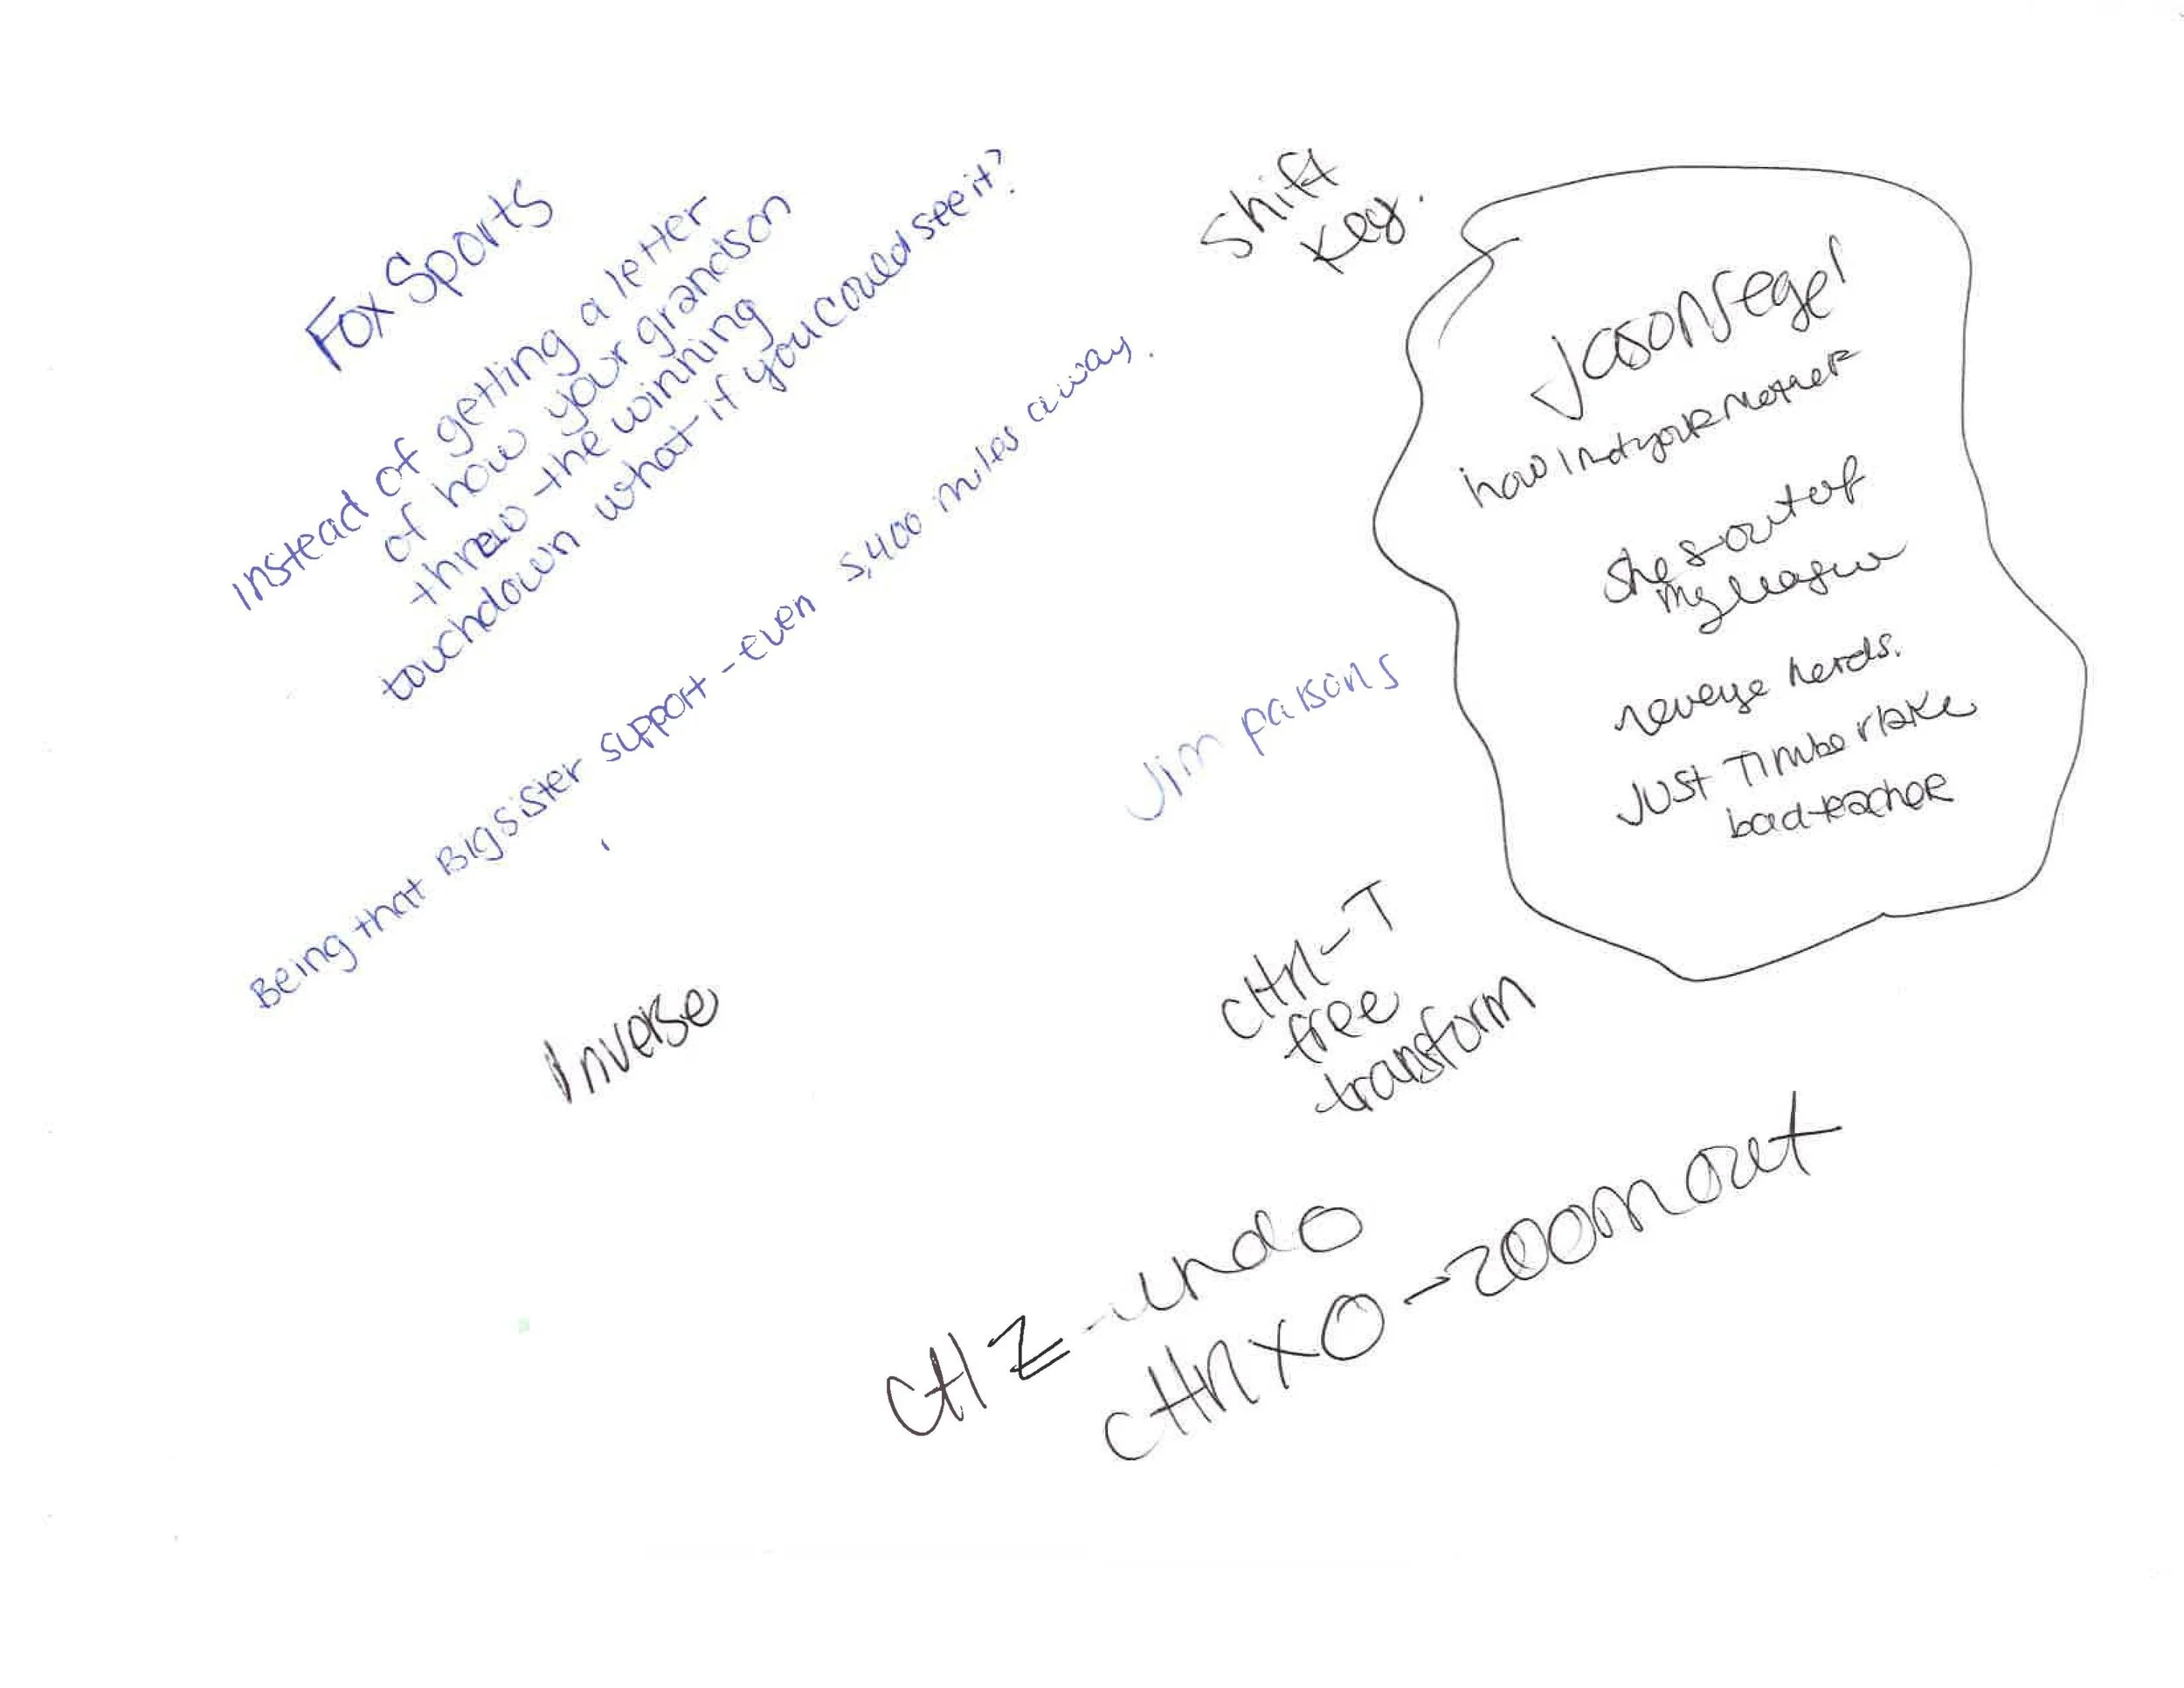 Fox Sports
Instead of getting a letter
of how your grandson
threw the winning
touchdown what if you could see it?
Being that Big sister support - even 5,400 miles away.
Shift
Key.
Jason segel
how I met your mother
She's out of
my league
revenge nerds.
Just Timberlake
bad teacher
Jim parsons
Inverse
Ctrl - T
free
transform
Ctrl Z - undo
Ctrl X O - zoom out